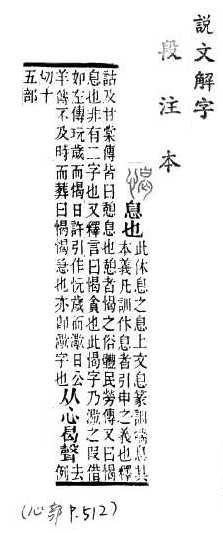 說文解字
段注本
息也
此休息之息上文息篆訓喘息其
本義凡訓休息者引申之義也釋
詁及甘棠傳皆曰憩息也憩者愒之俗體民勞傳又曰愒
息也非有二字也又釋言曰愒貪也此愒字乃㵣之叚借
如左傳玩歲而愒日許引作忨歲而㵣日公
羊傳不及時而葬曰愒愒急也亦卽㵣字也
从心曷聲
去例
切十
五部
(心部 P.512)